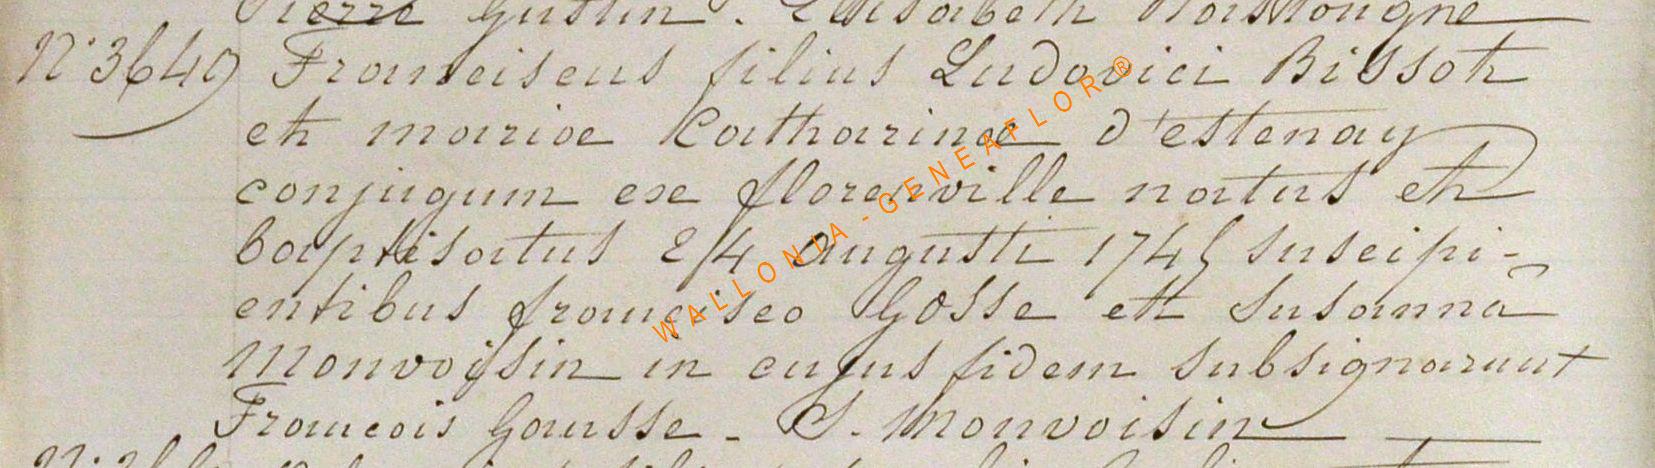 Pierre Gustin. Elisabeth
N° 3649 Franciscus filius Ludovici Bissot
et mariae Catharinae d'estenay
conjugum ex florenville natus et
baptisatus 24 augusti 1745 suscipi-
entibus francisco Gosse et Susanna
Monvoisin in cujus fidem subsignarunt
Francois Gousse - S. Monvoisin
WALLONIA - GENEAFLOR®